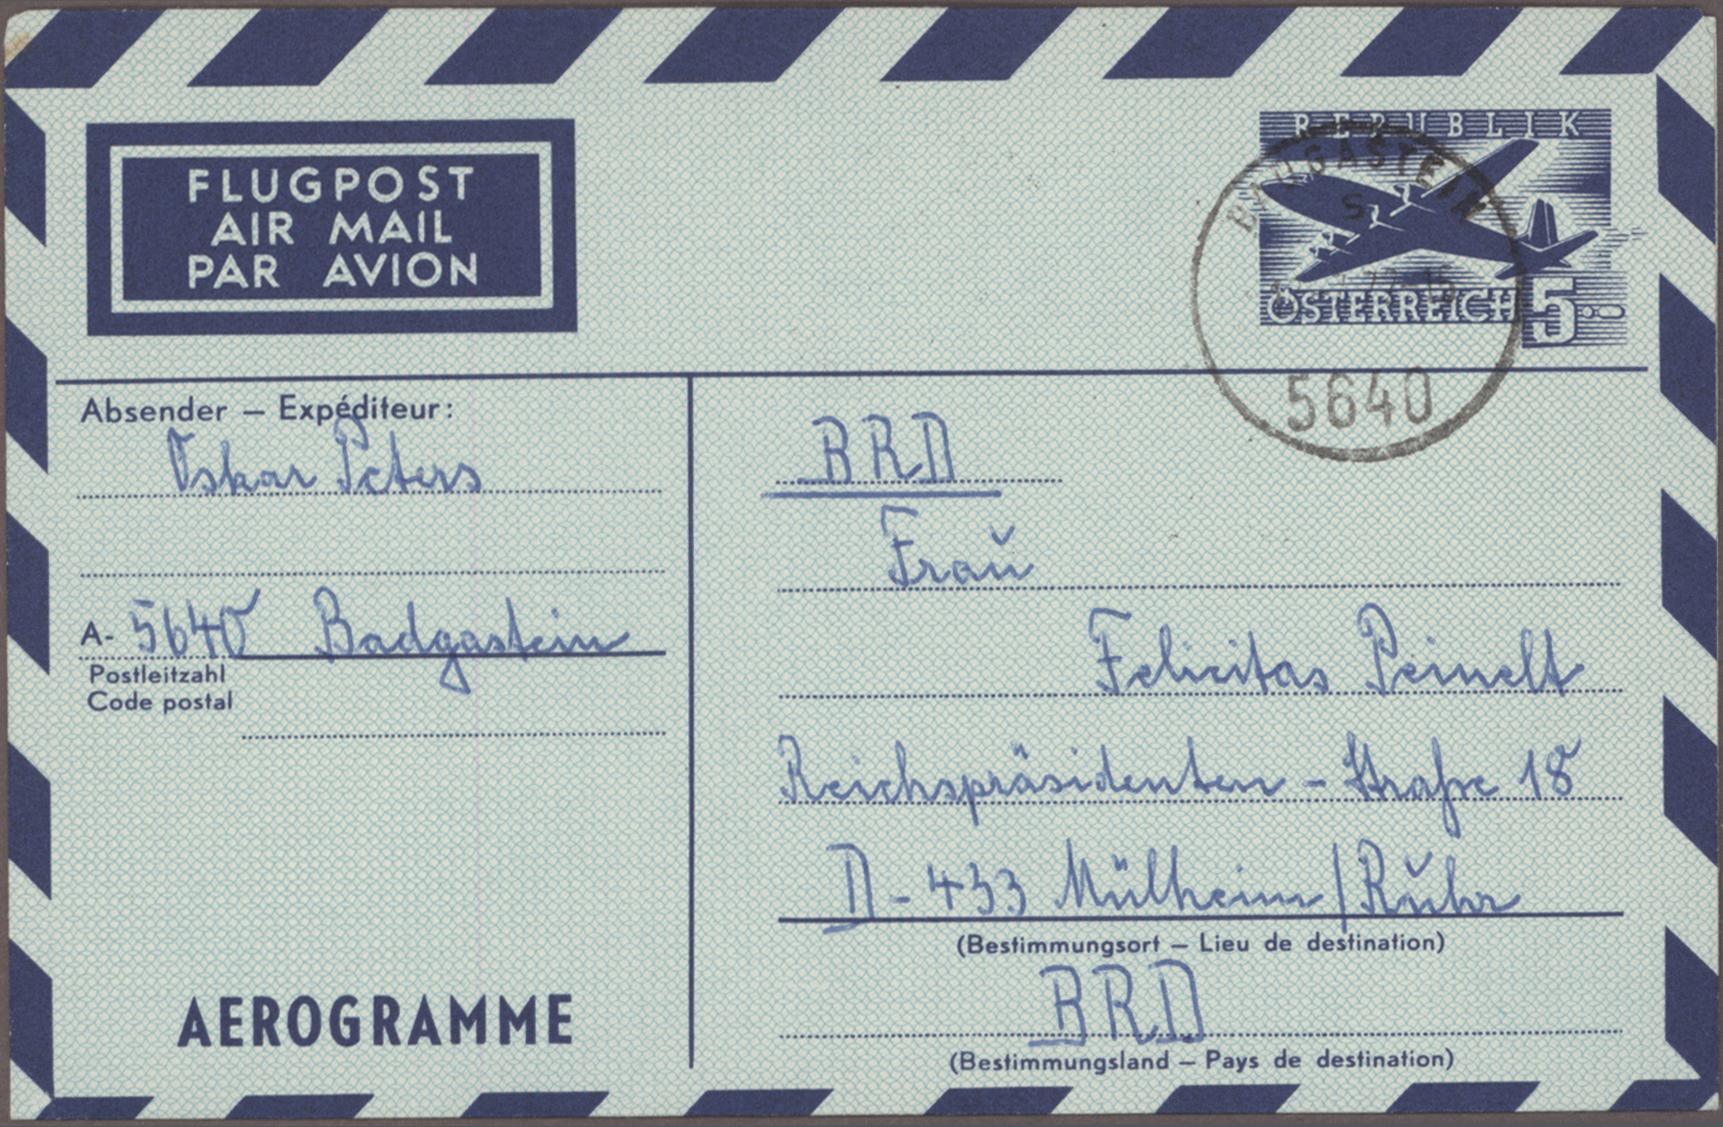 FLUGPOST
AIR MAIL
PAR AVION
REPUBLIK
ÖSTERREICH 5
BADGASTEIN
S
5640
Absender – Expéditeur:
Oskar Peters
A- 5640 Badgastein
Postleitzahl
Code postal
AEROGRAMME
BRD
Frau
Felicitas Peinelt
Reichspräsidenten - Straße 18
D - 433 Mülheim / Ruhr
(Bestimmungsort – Lieu de destination)
BRD
(Bestimmungsland – Pays de destination)